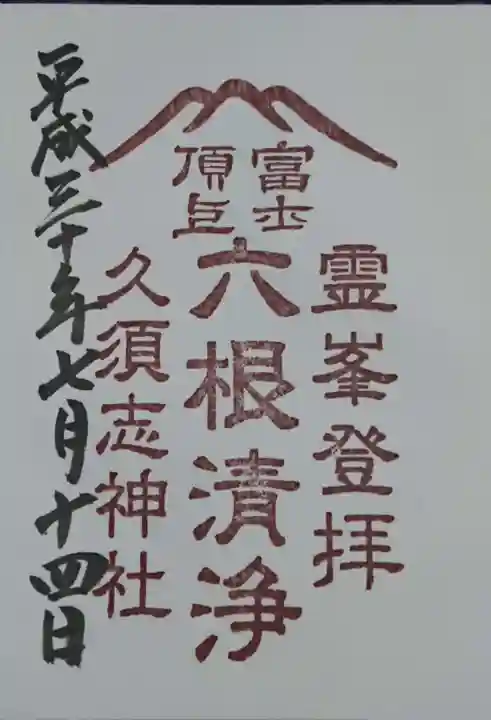 富士
頂上
霊峯登拝
六根清浄
久須志神社
平成三十年七月十四日